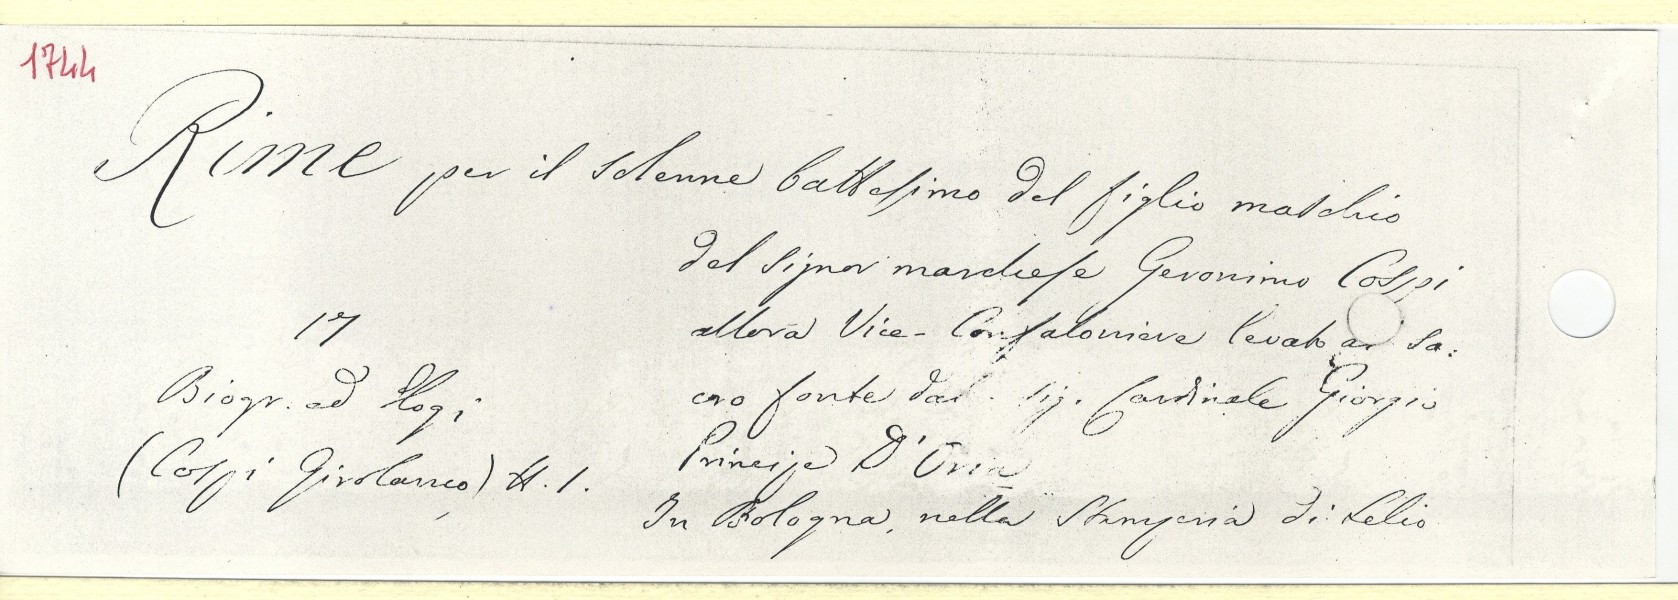 1744
Rime per il solenne battesimo del figlio maschio
del signor marchese Geronimo Cospi
allora Vice-Confaloniere levato al sa:
cro fonte dal sig. Cardinale Giorgio
Principe D'Oria
In Bologna, nella Stamperia di Lelio
17
Biogr. ed Elogi
(Cospi Girolamo) H. 1.